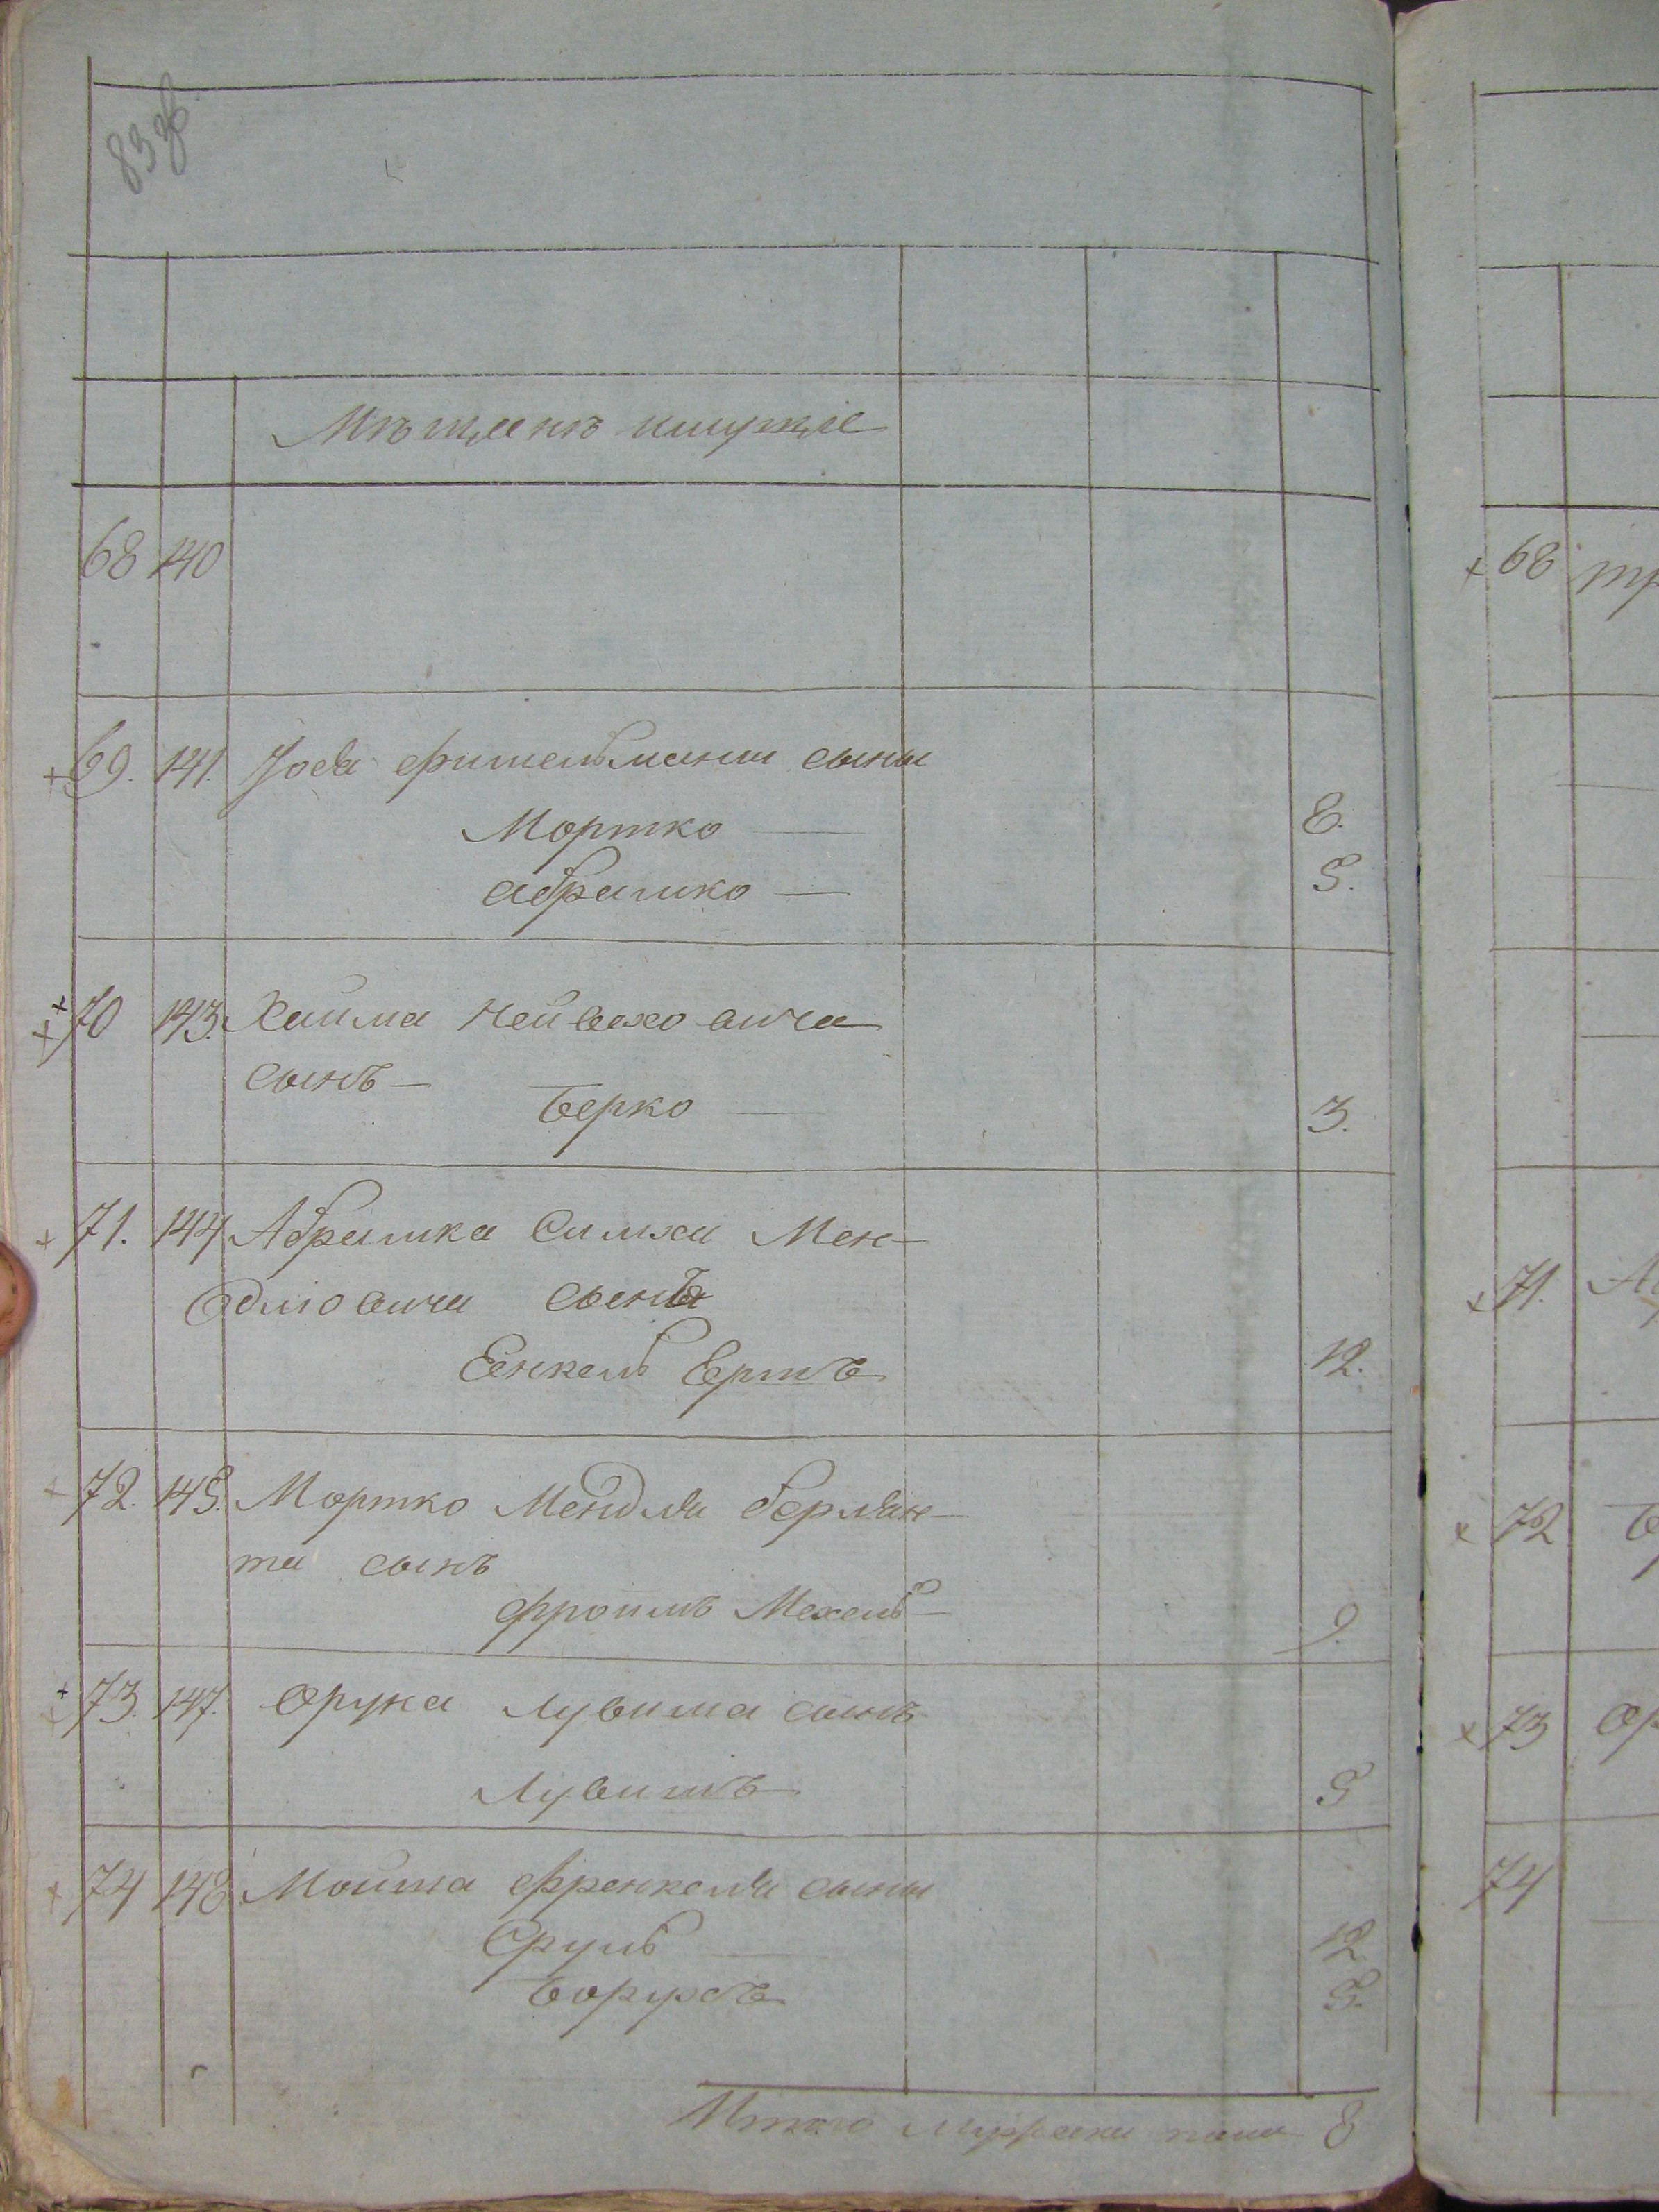 83 об.
Мѣщанъ имущіе
68 140
69. 141. Іоса Фишельмана сыны
Мортко — 8.
Абрамко — 5.
70 143. Хаима Нейваховича
сынъ —
Берко — 3.
71. 144 Абрамка Симхи Мен-
длювича сынъ
Еенкель Герть 12.
72. 145. Мортко Мендля Берлян-
та сынъ
Фроимъ Мехель — 9.
73. 147. Орука Лувима сынъ
Лувимъ 5
74 148 Мошка Френкеля сыны
Сруль — 12
Борухъ 5.
Итого мужеска пола 8
68
71. Аб
72 Б
73 Ор
74